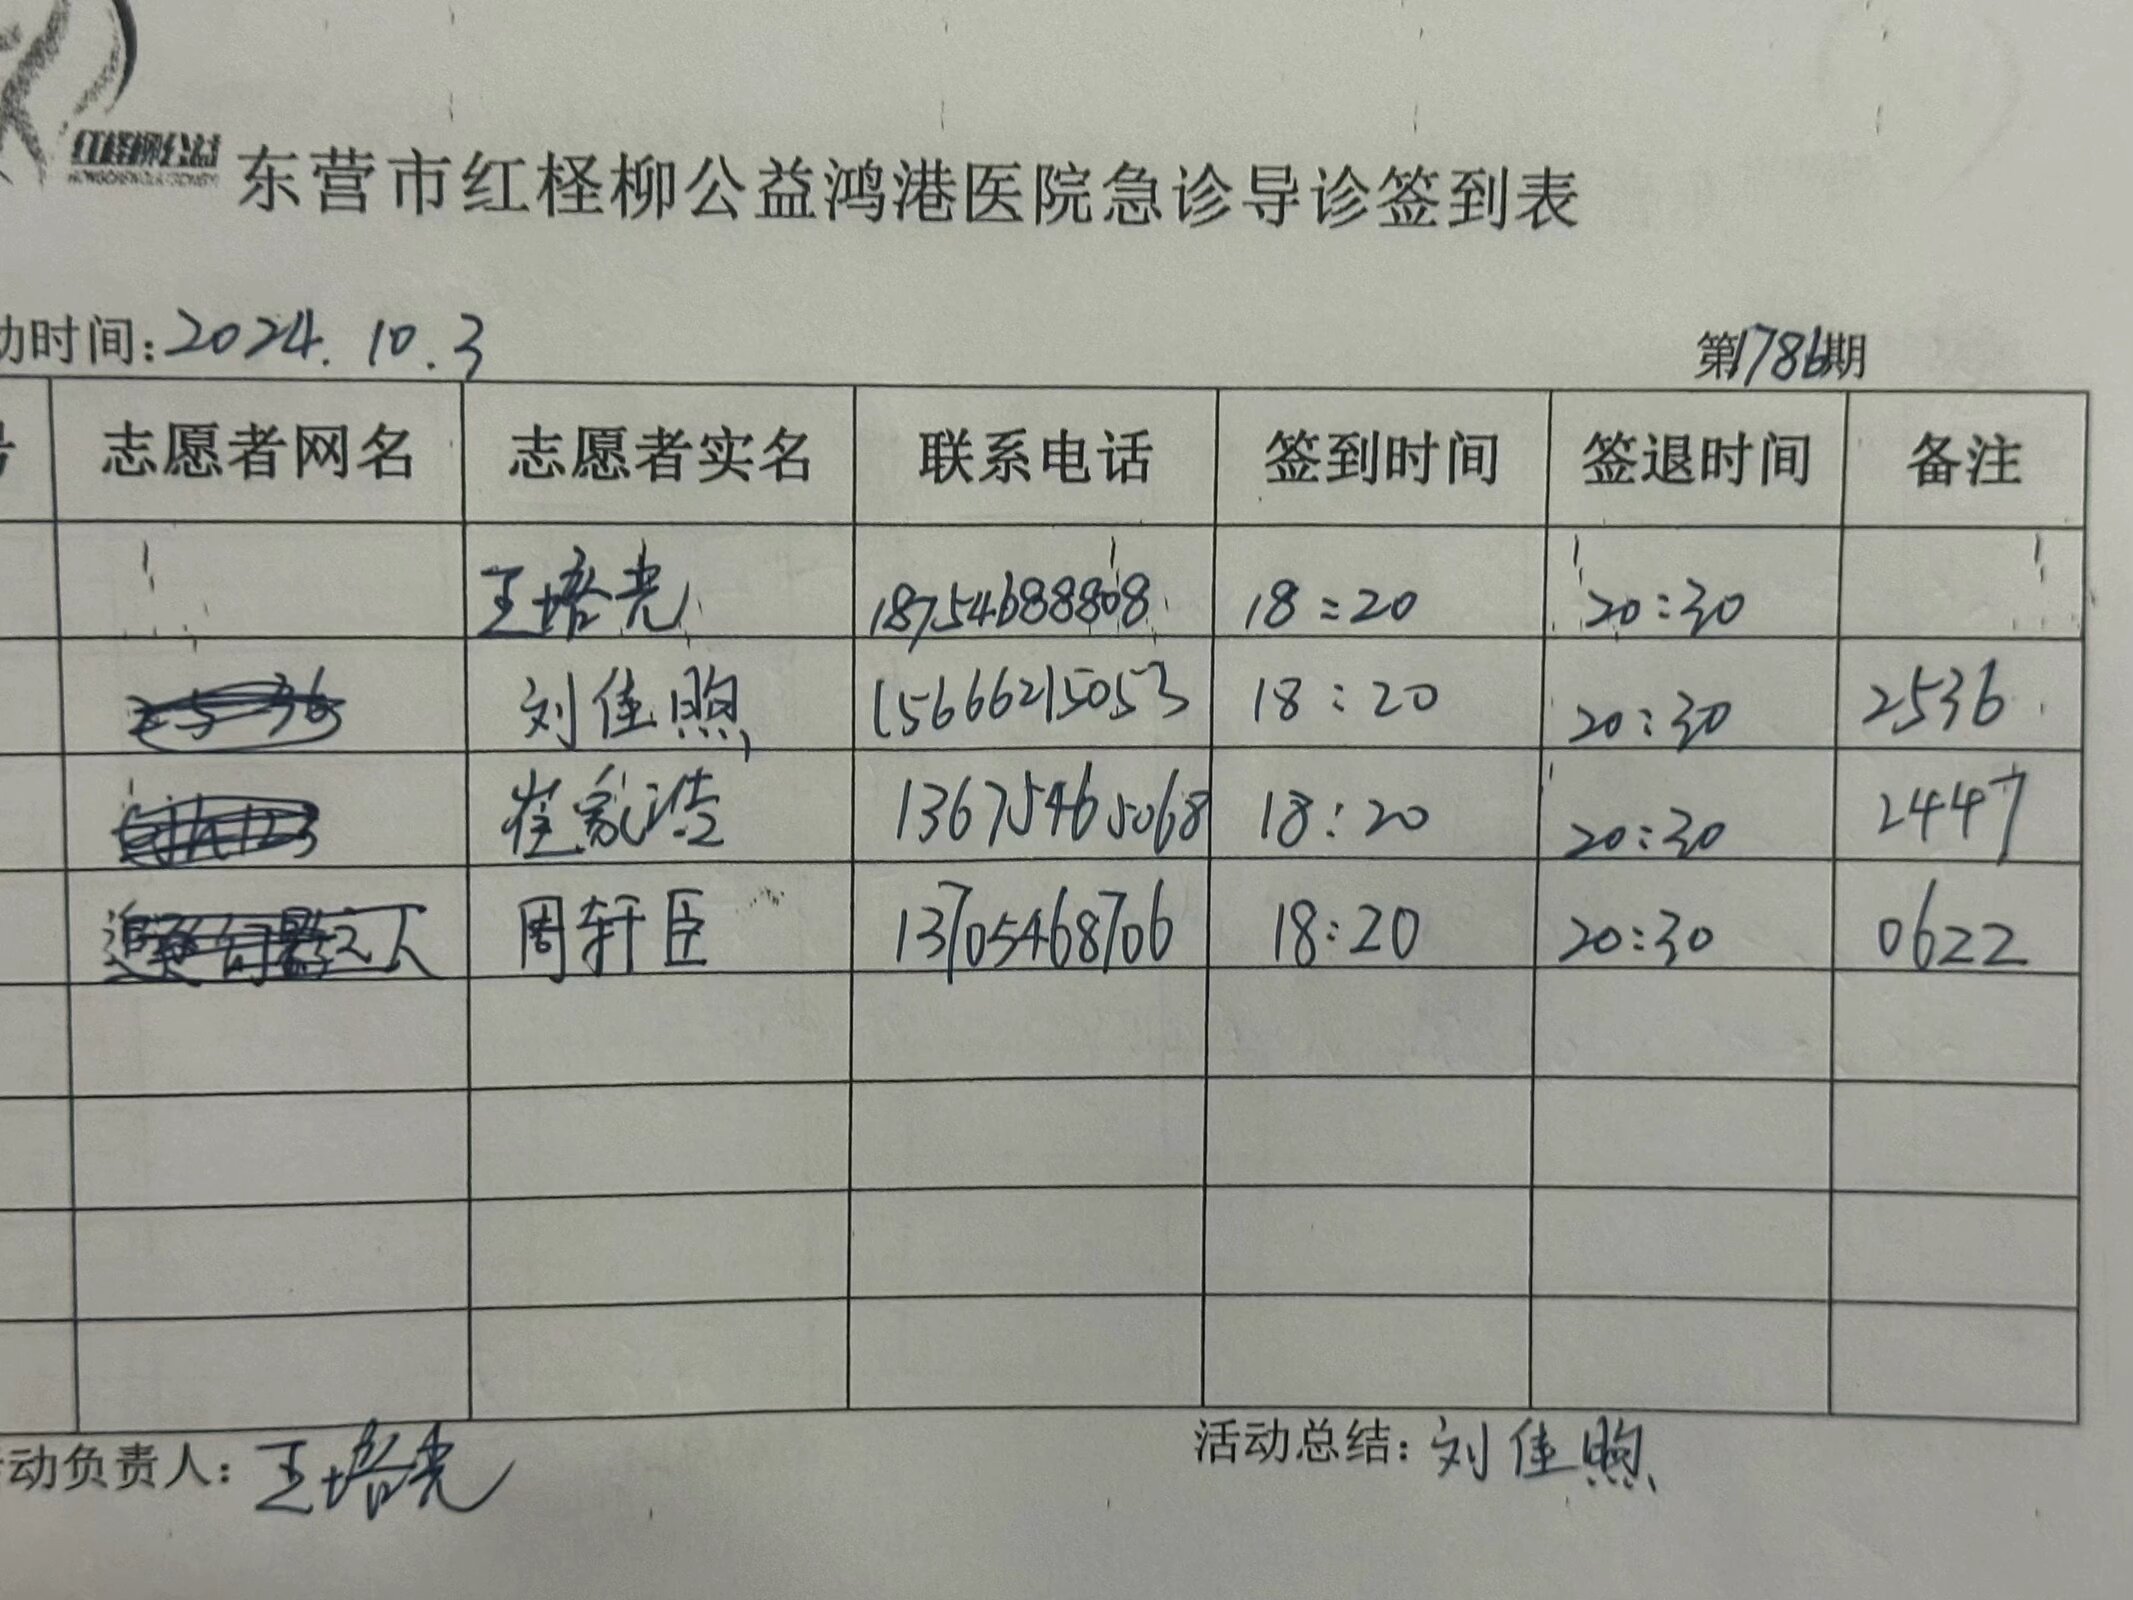 红柽柳公益
东营市红柽柳公益鸿港医院急诊导诊签到表
动时间:2024.10.3 第1786期
号 志愿者网名 志愿者实名 联系电话 签到时间 签退时间 备注
王培光 18754688808 18:20 20:30
刘佳煦 15666215053 18:20 20:30 2536
崔家浩 13675465068 18:20 20:30 2447
周轩臣 13705468706 18:20 20:30 0622
活动负责人:王培光 活动总结:刘佳煦